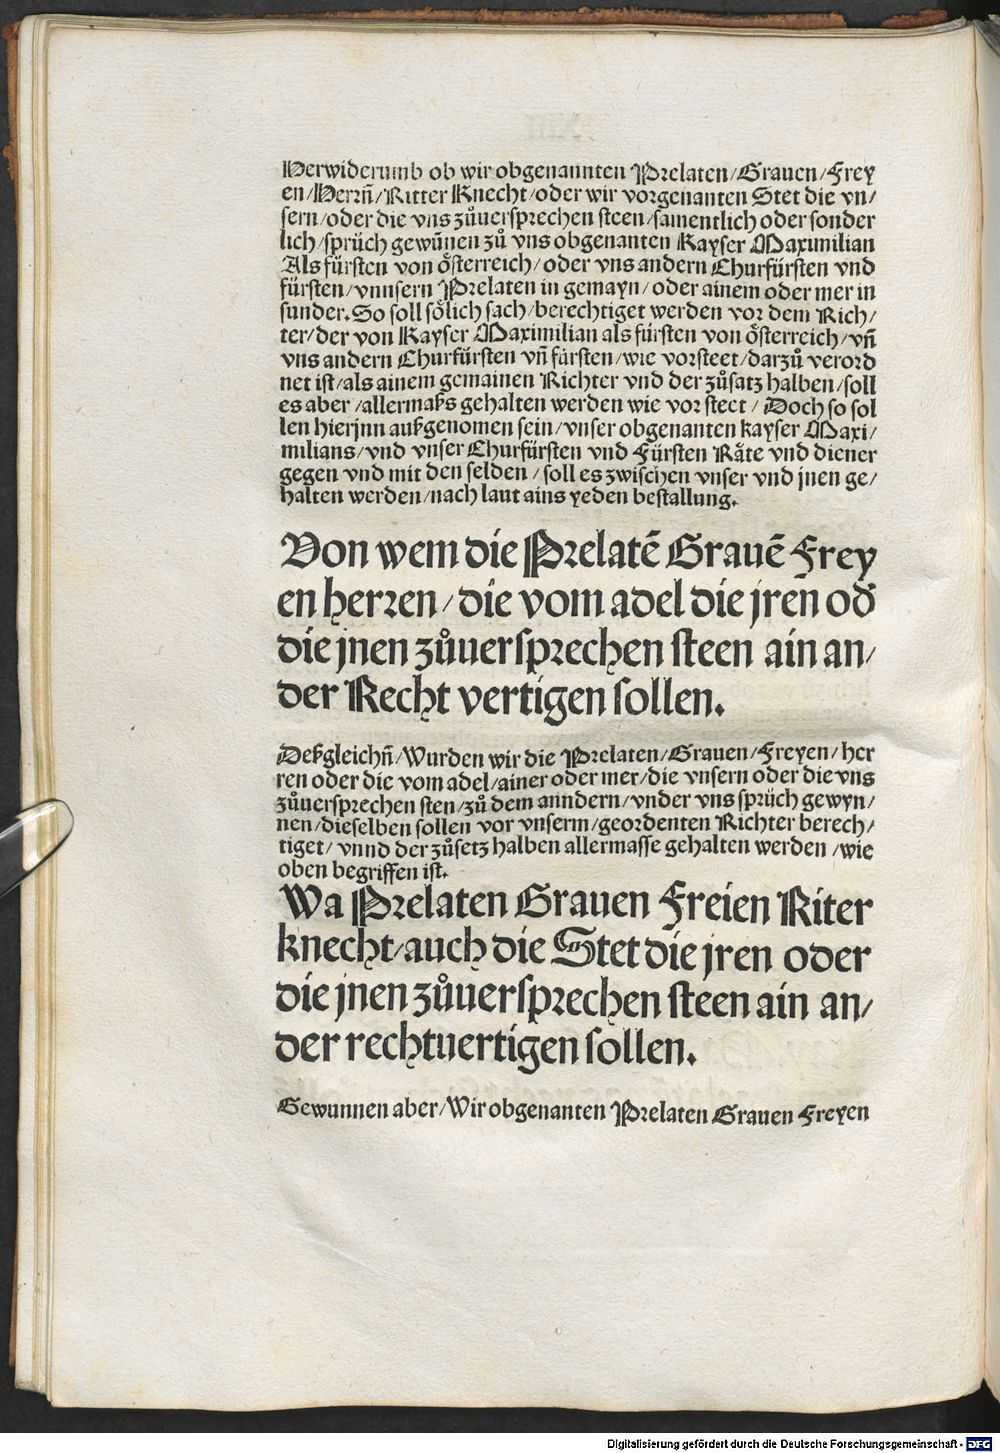 Herwiderumb ob wir obgenannten Prelaten/Grauen/Frey
en/Herrñ/Ritter Knecht/oder wir vorgenanten Stet die vn/
sern/oder die vns zůuersprechen steen/samentlich oder sonder
lich/sprüch gewũnen zů vns obgenanten Kayser Maximilian
Als fürsten von oͤsterreich/oder vns andern Churfürsten vnd
fürsten/vnnsern Prelaten in gemayn/oder ainem oder mer in
sunder. So soll soͤlich sach/berechtiget werden vor dem Rich/
ter/der von Kayser Maximilian als fürsten von oͤsterreich/vñ
vns andern Churfürsten vñ fürsten/wie vorsteet/darzů verord
net ist/als ainem gemainen Richter vnd der zůsatz halben/soll
es aber/allermaß gehalten werden wie vor steet/Doch so sol
len hierjnn außgenomen sein/vnser obgenanten kayser Maxi/
milians/vnd vnser Churfürsten vnd Fürsten Raͤte vnd diener
gegen vnd mit den selden/soll es zwischen vnser vnd jnen ge/
halten werden/nach laut ains yeden bestallung.
Von wem die Prelatẽ Grauẽ Frey
en herren/die vom adel die jreñ oď
die jnen zůuersprechen steen ain an/
der Recht vertigen sollen.
Deßgleichñ/Wurden wir die Prelaten/Grauen/Freyen/her
ren oder die vom adel/ainer oder mer/die vnsern oder die vns
zůuersprechen sten/zů dem anndern/vnder vns sprüch gewyn/
nen/dieselben sollen vor vnserm/geordenten Richter berech/
tiget/vnnd der zůsetz halben allermasse gehalten werden/wie
oben begriffen ist.
Wa Prelaten Grauen Freien Riter
knecht/auch die Stet die jren oder
die jnen zůuersprechen steen ain an/
der rechtuertigen sollen.
Gewunnen aber/Wir obgenanten Prelaten Grauen Freyen
Digitalisierung gefördert durch die Deutsche Forschungsgemeinschaft - DFG